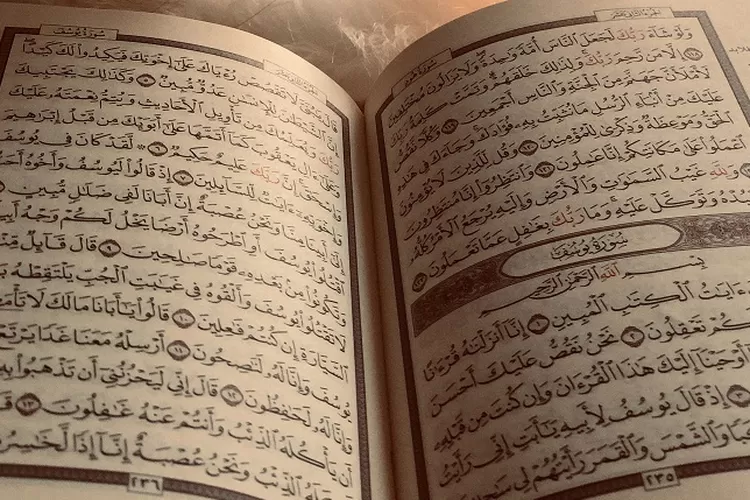 الجزء الثاني عشر
سُورَةُ هُودٍ
وَلَوْ شَآءَ رَبُّكَ لَجَعَلَ ٱلنَّاسَ أُمَّةً وَٰحِدَةً وَلَا يَزَالُونَ مُخْتَلِفِينَ
١١٨ إِلَّا مَن رَّحِمَ رَبُّكَ وَلِذَٰلِكَ خَلَقَهُمْ وَتَمَّتْ كَلِمَةُ رَبِّكَ
لَأَمْلَأَنَّ جَهَنَّمَ مِنَ ٱلْجِنَّةِ وَٱلنَّاسِ أَجْمَعِينَ ١١٩ وَكُلًّا نَّقُصُّ
عَلَيْكَ مِنْ أَنۢبَآءِ ٱلرُّسُلِ مَا نُثَبِّتُ بِهِۦ فُؤَادَكَ وَجَآءَكَ فِى هَٰذِهِ
ٱلْحَقُّ وَمَوْعِظَةٌ وَذِكْرَىٰ لِلْمُؤْمِنِينَ ١٢٠ وَقُل لِّلَّذِينَ لَا يُؤْمِنُونَ
ٱعْمَلُوا۟ عَلَىٰ مَكَانَتِكُمْ إِنَّا عَٰمِلُونَ ١٢١ وَٱنتَظِرُوٓا۟ إِنَّا مُنتَظِرُونَ
وَلِلَّهِ غَيْبُ ٱلسَّمَٰوَٰتِ وَٱلْأَرْضِ وَإِلَيْهِ يُرْجَعُ ٱلْأَمْرُ كُلُّهُۥ
وَتَوَكَّلْ عَلَيْهِ وَمَا رَبُّكَ بِغَٰفِلٍ عَمَّا تَعْمَلُونَ ١٢٣
سُورَةُ يُوسُفَ
بِسْمِ ٱللَّهِ ٱلرَّحْمَٰنِ ٱلرَّحِيمِ
ءَايَٰتُ ٱلْكِتَٰبِ ٱلْمُبِينِ ١ إِنَّآ أَنزَلْنَٰهُ قُرْءَٰنًا
تَعْقِلُونَ ٢ نَحْنُ نَقُصُّ عَلَيْكَ أَحْسَنَ
أَوْحَيْنَآ إِلَيْكَ هَٰذَا ٱلْقُرْءَانَ وَإِن كُنتَ مِن قَبْلِهِۦ
٣ إِذْ قَالَ يُوسُفُ لِأَبِيهِ يَٰٓأَبَتِ إِنِّى رَأَيْتُ
وَٱلشَّمْسَ وَٱلْقَمَرَ رَأَيْتُهُمْ لِى
٢٣٥
الجزء الثاني عشر
سُورَةُ يُوسُفَ
قَالَ يَٰبُنَىَّ لَا تَقْصُصْ رُءْيَاكَ عَلَىٰٓ إِخْوَتِكَ فَيَكِيدُوا۟ لَكَ كَيْدًا
إِنَّ ٱلشَّيْطَٰنَ لِلْإِنسَٰنِ عَدُوٌّ مُّبِينٌ ٥ وَكَذَٰلِكَ يَجْتَبِيكَ
رَبُّكَ وَيُعَلِّمُكَ مِن تَأْوِيلِ ٱلْأَحَادِيثِ وَيُتِمُّ نِعْمَتَهُۥ عَلَيْكَ
وَعَلَىٰٓ ءَالِ يَعْقُوبَ كَمَآ أَتَمَّهَا عَلَىٰٓ أَبَوَيْكَ مِن قَبْلُ إِبْرَٰهِيمَ
وَإِسْحَٰقَ إِنَّ رَبَّكَ عَلِيمٌ حَكِيمٌ ٦ ۞ لَّقَدْ كَانَ فِى يُوسُفَ
وَإِخْوَتِهِۦٓ ءَايَٰتٌ لِّلسَّآئِلِينَ ٧ إِذْ قَالُوا۟ لَيُوسُفُ وَأَخُوهُ
إِلَىٰٓ أَبِينَا مِنَّا وَنَحْنُ عُصْبَةٌ إِنَّ أَبَانَا لَفِى ضَلَٰلٍ مُّبِينٍ
ٱقْتُلُوا۟ يُوسُفَ أَوِ ٱطْرَحُوهُ أَرْضًا يَخْلُ لَكُمْ وَجْهُ
وَتَكُونُوا۟ مِنۢ بَعْدِهِۦ قَوْمًا صَٰلِحِينَ ٩ قَالَ قَآئِلٌ
لَا تَقْتُلُوا۟ يُوسُفَ وَأَلْقُوهُ فِى غَيَٰبَتِ ٱلْجُبِّ يَلْتَقِطْهُ
ٱلسَّيَّارَةِ إِن كُنتُمْ فَٰعِلِينَ ١٠ قَالُوا۟ يَٰٓأَبَانَا مَالَكَ لَا
يُوسُفَ وَإِنَّا لَهُۥ لَنَٰصِحُونَ ١١ أَرْسِلْهُ مَعَنَا غَدًا
وَإِنَّا لَهُۥ لَحَٰفِظُونَ ١٢ قَالَ إِنِّى لَيَحْزُنُنِىٓ أَن تَذْهَبُوا۟
أَن يَأْكُلَهُ ٱلذِّئْبُ وَأَنتُمْ عَنْهُ غَٰفِلُونَ ١٣
ٱلذِّئْبُ وَنَحْنُ عُصْبَةٌ إِنَّآ إِذًا
٢٣٦